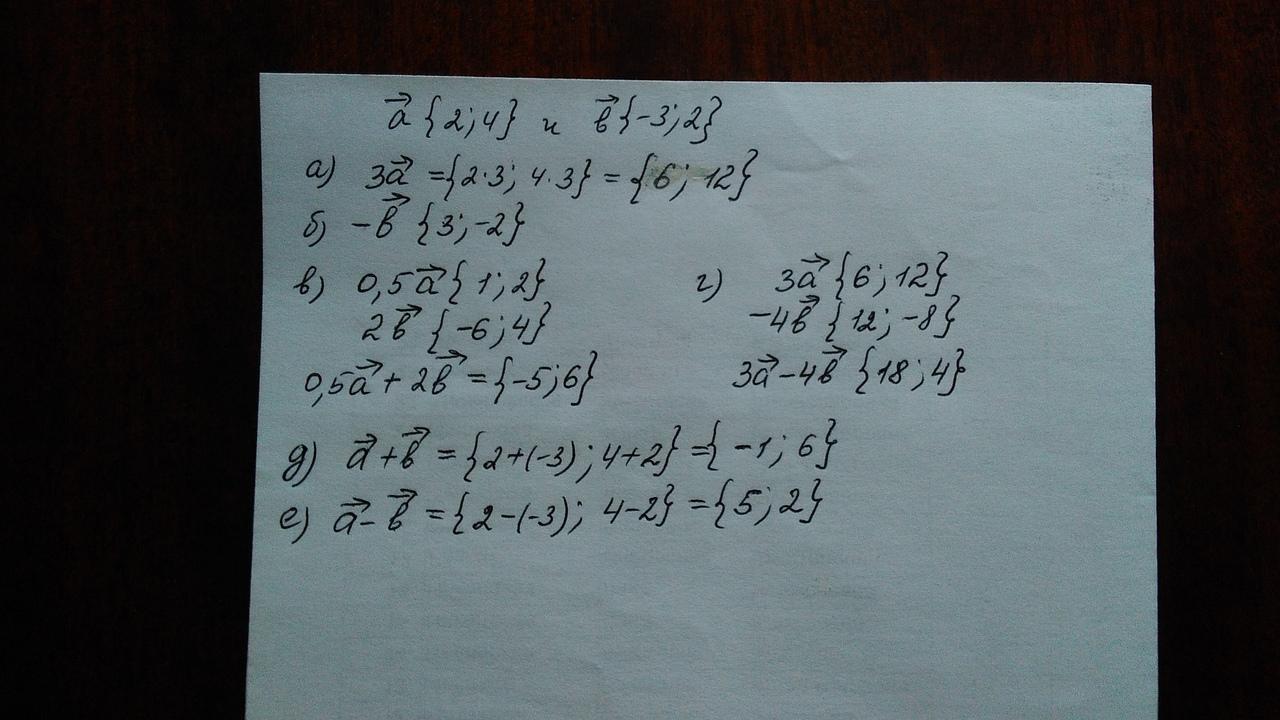 a⃗ {2; 4} и b⃗ {-3; 2}
а) 3a⃗ = {2·3; 4·3} = {6; 12}
б) -b⃗ {3; -2}
в) 0,5a⃗ {1; 2}
2b⃗ {-6; 4}
0,5a⃗ + 2b⃗ = {-5; 6}
г) 3a⃗ {6; 12}
-4b⃗ {12; -8}
3a⃗ - 4b⃗ {18; 4}
д) a⃗ + b⃗ = {2+(-3); 4+2} = {-1; 6}
е) a⃗ - b⃗ = {2-(-3); 4-2} = {5; 2}